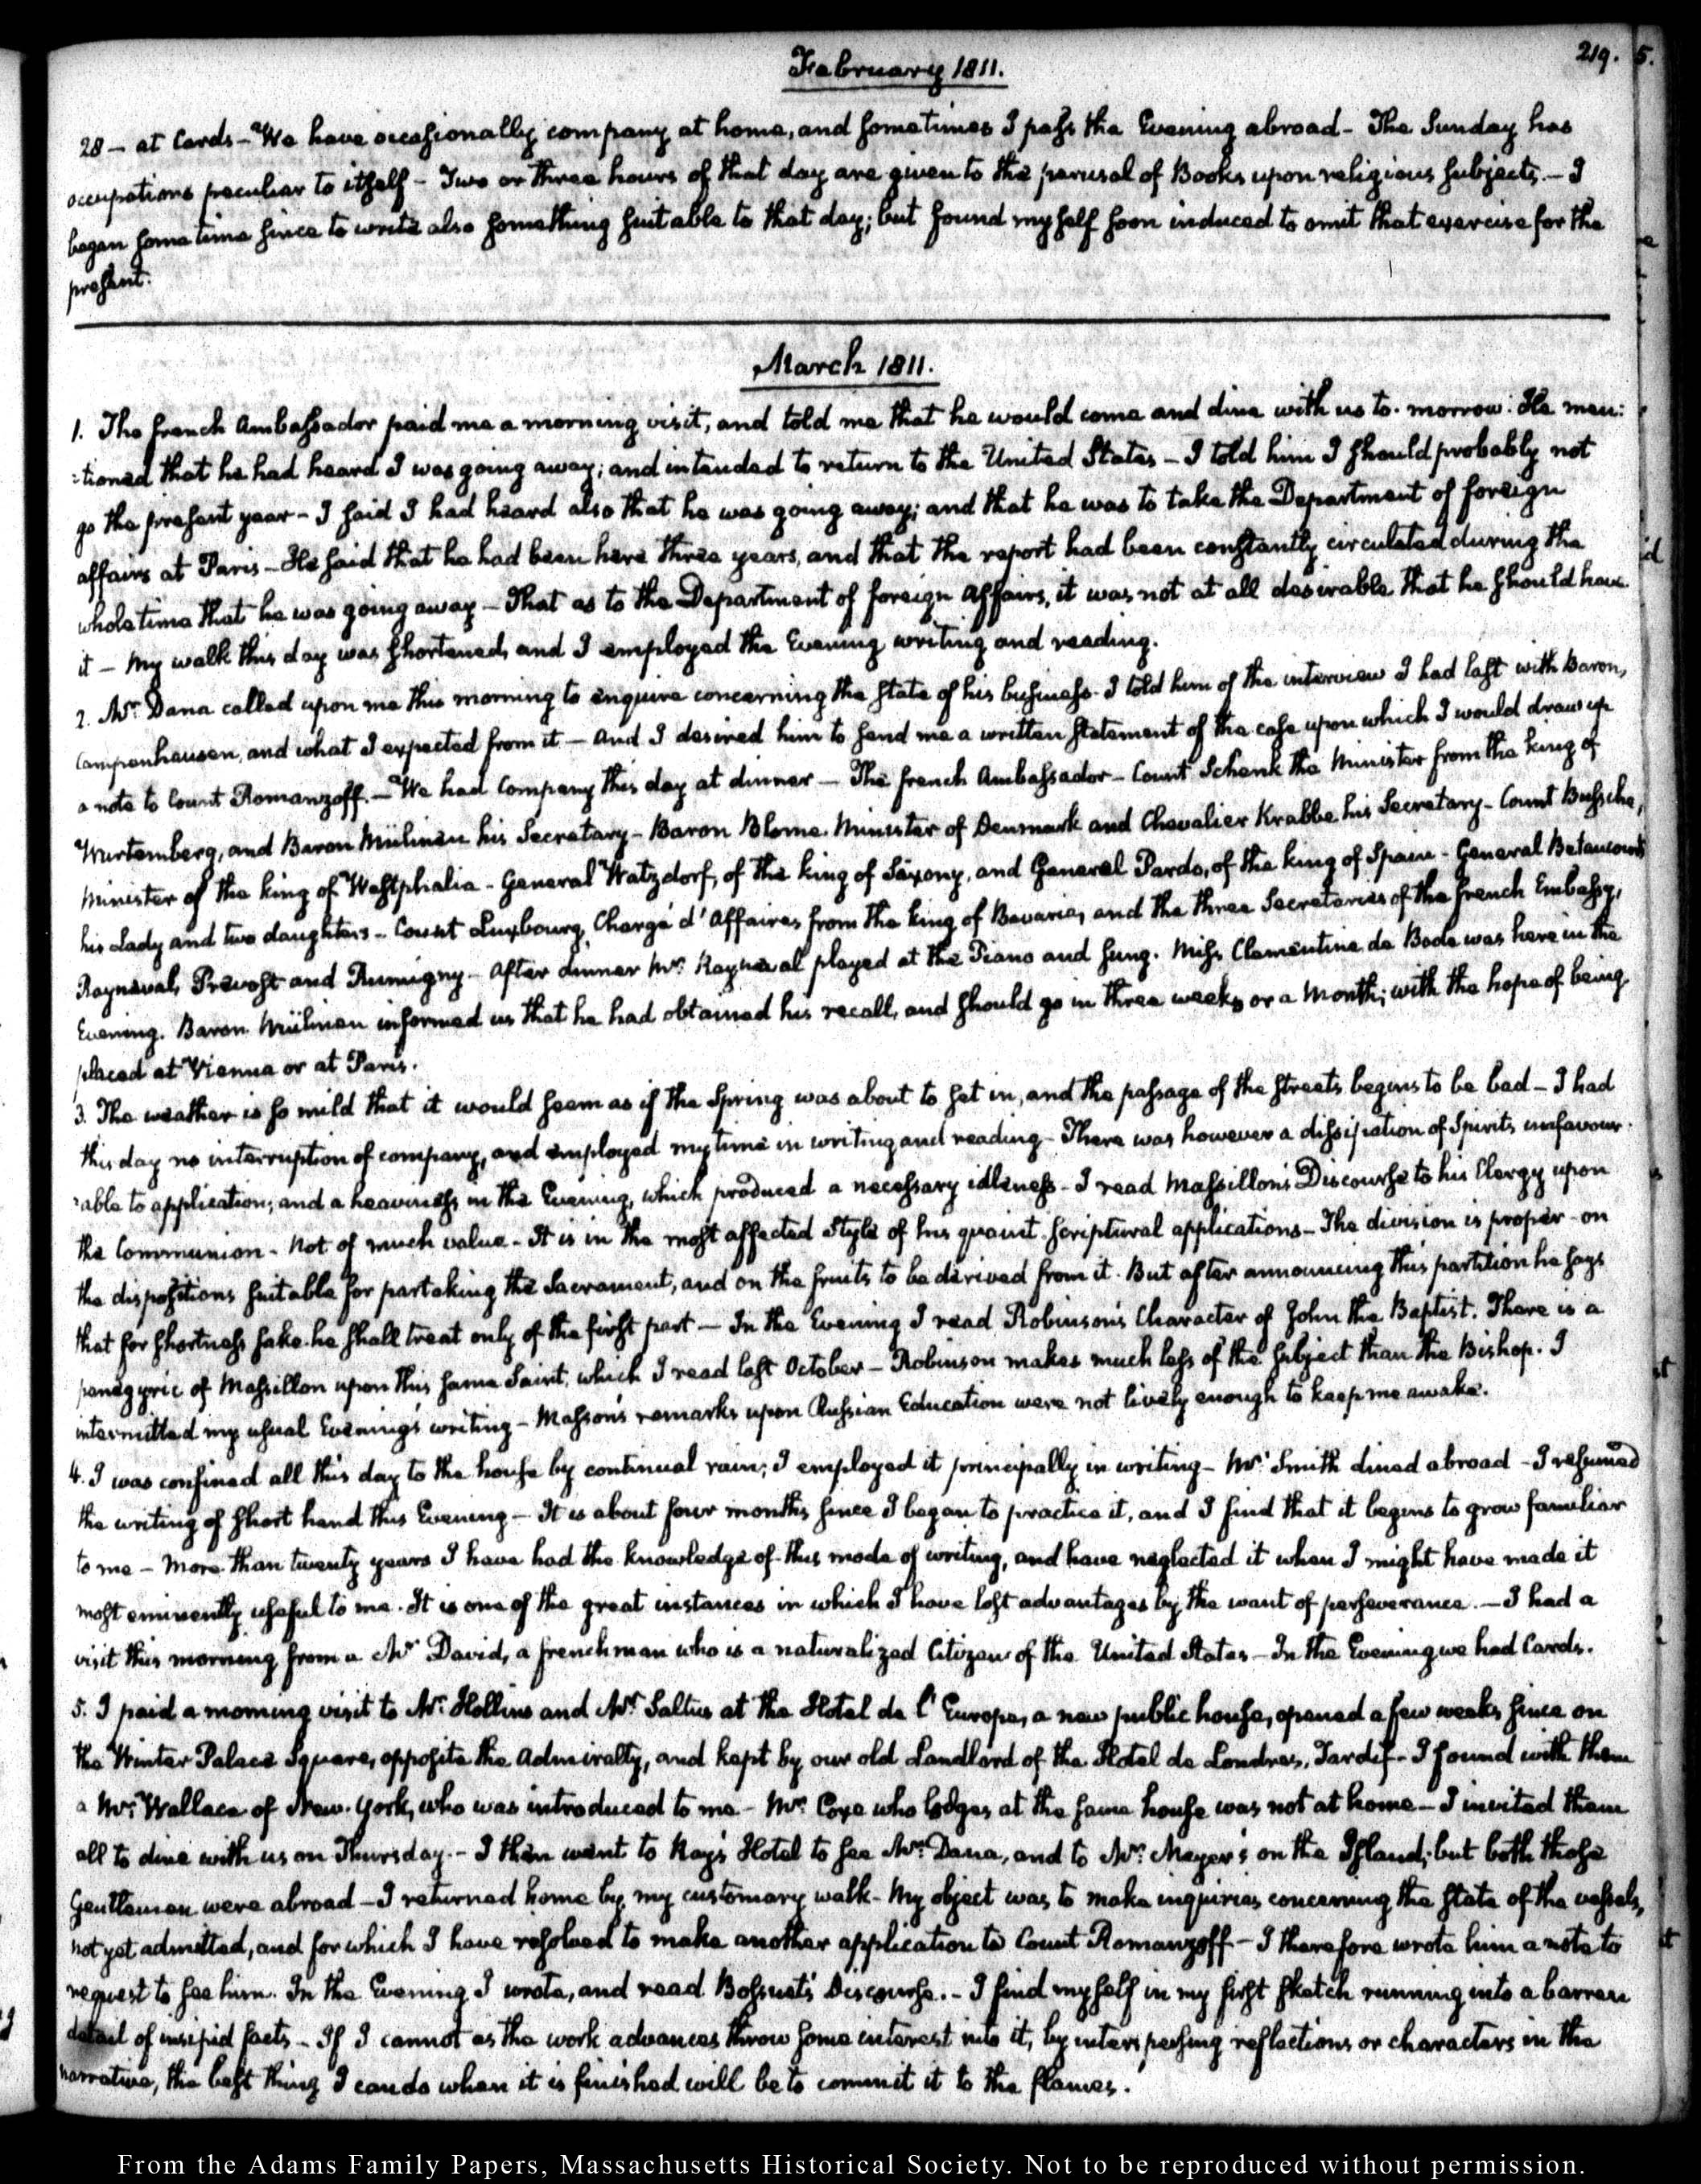 February 1811.
219.
5.
28 – at Cards – We have occasionally company at home, and sometimes I pass the Evening abroad – The Sunday has
occupations peculiar to itself – Two or three hours of that day are given to the perusal of Books upon religious subjects. – I
began some time since to write also something suitable to that day; but found myself soon induced to omit that exercise for the
present.
March 1811.
1. The french Ambassador paid me a morning visit, and told me that he would come and dine with us to-morrow. He men:
:tioned that he had heard I was going away; and intended to return to the United States – I told him I should probably not
go the present year – I said I had heard also that he was going away; and that he was to take the Department of foreign
affairs at Paris – He said that he had been here three years, and that the report had been constantly circulated during the
whole time that he was going away – That as to the Department of foreign Affairs, it was not at all desirable that he should have
it – My walk this day was shortened, and I employed the Evening writing and reading.
2. Mr. Dana called upon me this morning to enquire concerning the state of his business. I told him of the interview I had last with Baron,
Campenhausen, and what I expected from it – And I desired him to send me a written statement of the case upon which I would draw up
a note to Count Romanzoff. – We had Company this day at dinner – The french Ambassador – Count Schenk the Minister from the king of
Wurtemberg, and Baron Mülinen his Secretary – Baron Blome Minister of Denmark and Chevalier Krabbe his Secretary – Count Bussche,
Minister of the king of Westphalia – General Watzdorf, of the king of Saxony, and General Pardo, of the king of Spain – General Betancourt
his Lady and two daughters – Count Luxbourg, Chargé d'Affaires from the king of Bavaria, and the three Secretaries of the french Embassy,
Raynéval, Prévost and Rumigny – After dinner Mr. Raynéval played at the Piano and sung. Miss Clementina de Bode was here in the
Evening. Baron Mülinen informed us that he had obtained his recall, and should go in three weeks or a Month; with the hope of being
placed at Vienna or at Paris.
3. The weather is so mild that it would seem as if the Spring was about to set in, and the passage of the streets begins to be bad – I had
this day no interruption of company, and employed my time in writing and reading – There was however a dissipation of Spirits unfavour-
:able to application; and a heaviness in the Evening, which produced a necessary idleness – I read Massillon's Discourse to his Clergy upon
the Communion – Not of much value – It is in the most affected Style of his quaint scriptural applications – The division is proper – on
the dispositions suitable for partaking the Sacrament, and on the fruits to be derived from it. But after announcing this partition he says
that for shortness sake he shall treat only of the first part – In the Evening I read Robinson's Character of John the Baptist. There is a
panegyric of Massillon upon this same Saint, which I read last October – Robinson makes much less of the subject than the Bishop. I
intermitted my usual Evening's writing – Masson's remarks upon Russian Education were not lively enough to keep me awake.
4. I was confined all this day to the house by continual rain; I employed it principally in writing – Mr. Smith dined abroad – I resumed
the writing of short hand this Evening – It is about four months since I began to practice it, and I find that it begins to grow familiar
to me – More than twenty years I have had the knowledge of this mode of writing, and have neglected it when I might have made it
most eminently useful to me. It is one of the great instances in which I have lost advantages by the want of perseverance. – I had a
visit this morning from a Mr. David, a frenchman who is a naturalized Citizen of the United States – In the Evening we had Cards.
5. I paid a morning visit to Mr. Hollins and Mr. Saltus at the Hotel de l'Europe, a new public house, opened a few weeks since on
the Winter Palace Square, opposite the Admiralty, and kept by our old Landlord of the Hotel de Londres, Tardif – I found with them
a Mr. Wallace of New-York, who was introduced to me – Mr. Coxe who lodges at the same house was not at home – I invited them
all to dine with us on Thursday. – I then went to Kay's Hotel to see Mr. Dana, and to Mr. Meyer's on the Island; but both those
Gentlemen were abroad – I returned home by my customary walk – My object was to make inquiries concerning the state of the vessels,
not yet admitted, and for which I have resolved to make another application to Count Romanzoff – I therefore wrote him a note to
request to see him. In the Evening I wrote, and read Bossuet's Discourse. – I find myself in my first sketch running into a barren
detail of insipid facts – If I cannot as the work advances throw some interest into it, by interspersing reflections or characters in the
narrative, the best thing I can do when it is finished will be to commit it to the flames.
From the Adams Family Papers, Massachusetts Historical Society. Not to be reproduced without permission.